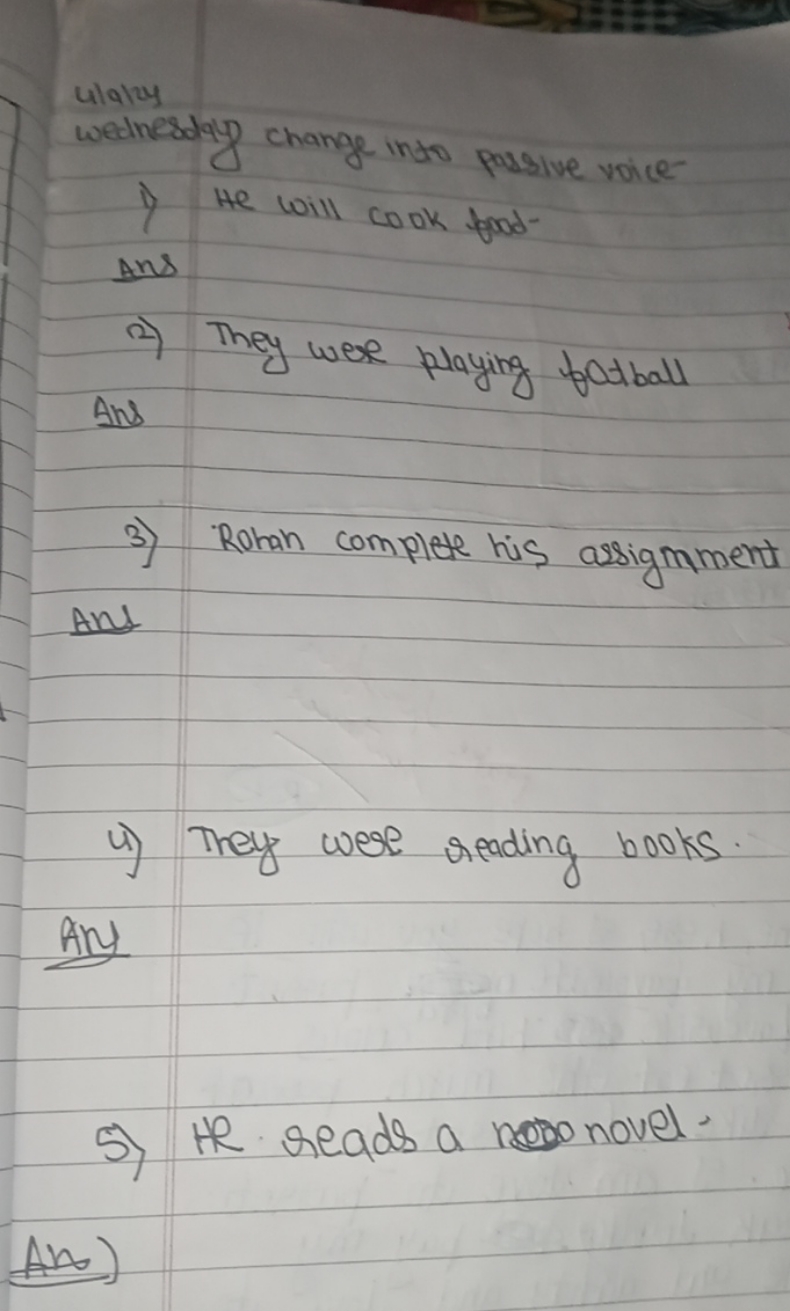 4/9/24
Wednesday change into passive voice-
1) He will cook food-
Ans
2) They were playing football
Ans
3) Rohan complete his assignment
Ans
4) They were reading books.
Ans
5) He reads a novel.
Ans)